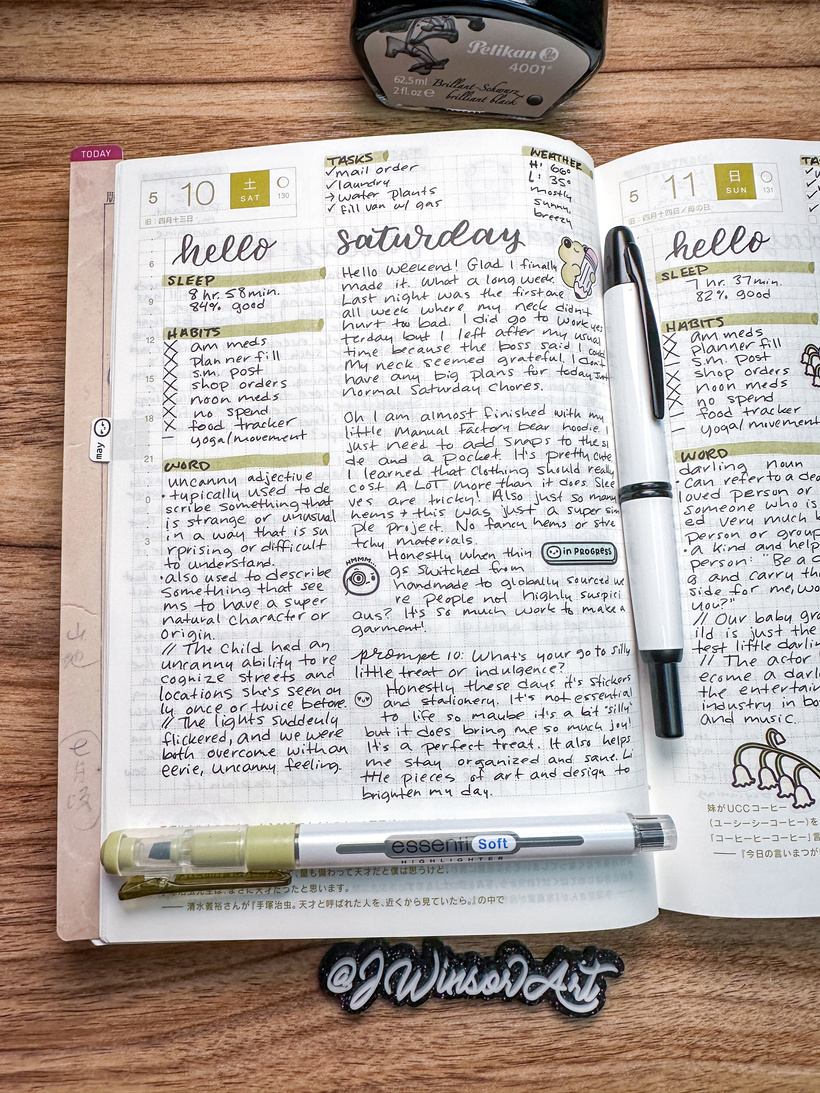 Pelikan
4001®
62,5 ml
2 fl. oz e
Brillant-Schwarz
brilliant black
TODAY
5 10 土 SAT 130
旧:四月十三日
TASKS
✓mail order
✓laundry
→ water plants
✓ fill van w/ gas
WEATHER
H: 66°
L: 35°
mostly
sunny,
breezy
hello
saturday
SLEEP
8 hr. 58 min.
84% good
HABITS
am meds
planner fill
s.m. post
shop orders
noon meds
no spend
food tracker
yoga/movement
WORD
uncanny adjective
• typically used to de
scribe something that
is strange or unusual
in a way that is su
rprising or difficult
to understand.
• also used to describe
something that see
ms to have a super
natural character or
origin.
// The child had an
uncanny ability to re
cognize streets and
locations she's seen on
ly once or twice before.
// The lights suddenly
flickered, and we were
both overcome with an
eerie, uncanny feeling.
6
9
12
15
18
21
0
3
may
Hello weekend! Glad I finally
made it. What a long week.
Last night was the first one
all week where my neck didn't
hurt to bad. I did go to work yes
terday but I left after my usual
time because the boss said I could
My neck seemed grateful. I don't
have any big plans for today, just
normal Saturday chores.
Oh I am almost finished with my
little Manual Factory bear hoodie. I
just need to add snaps to the si
de and a pocket. It's pretty cute
I learned that clothing should really
cost A LOT more than it does. Slee
ves are tricky! Also just so many
hems + this was just a super sim
ple project. No fancy hems or stre
tchy materials.
Honestly when thin
in PROGRESS
gs switched from
HMMM...
handmade to globally sourced we
re people not highly suspici
ous? It's so much work to make a
garment!
prompt 10: What's your go to silly
little treat or indulgence?
Honestly these days it's stickers
and stationery. It's not essential
to life so maybe it's a bit "silly"
but it does bring me so much joy!
It's a perfect treat. It also helps
me stay organized and sane. Li
ttle pieces of art and design to
brighten my day.
5 11 日 SUN 131
旧:四月十四日/母の日
TA
hello
SLEEP
7 hr. 37 min.
82% good
HABITS
am meds
planner fill
s.m. post
shop orders
noon meds
no spend
food tracker
yoga/movement
WORD
darling noun
• can refer to a dea
loved person or
someone who is
ed very much b
person or group
• a kind and help
person: "Be a d
g and carry th
side for me, wo
you?"
// Our baby gra
ild is just the
test little darlin
// The actor
ecome a darl
the entertain
industry in bo
and music.
妹がUCCコーヒー
(ユーシーシーコーヒー)を
「コーヒーコーヒーコーヒー」
——『今日の言いまつが
essenti Soft
HIGHLIGHTER
量も備わって天才だと僕は思うけど、
治虫先生は、まさに天才だったと思います。
—— 清水義裕さんが『手塚治虫。天才と呼ばれた人を、近くから見ていたら。』の中で
@JWinsorArt